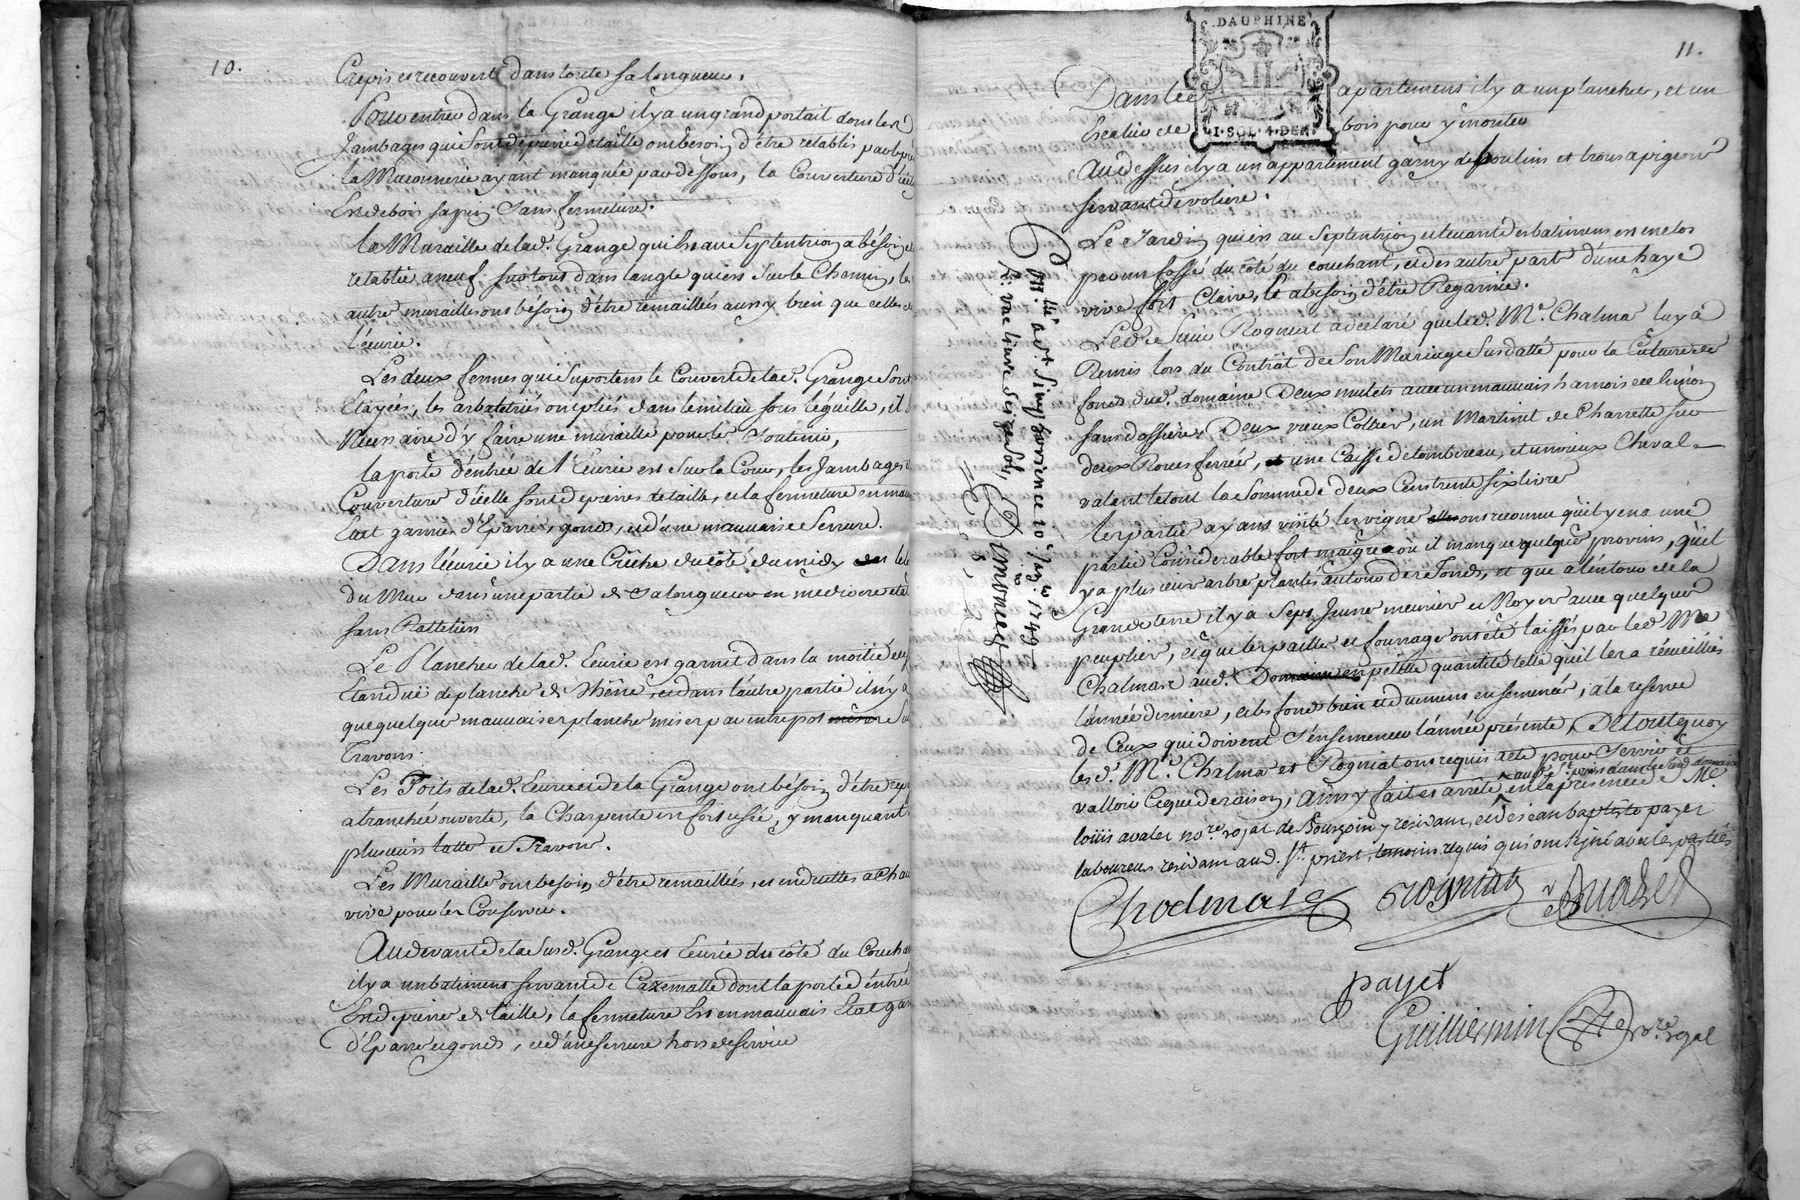 10.
Crepis et recouvert dans toute sa longueur.
Pour entrer dans la Grange il y a un grand portail dont les
Jambages qui sont de pierre de taille ont besoin d'être rétablis
la Maconnerie ayant manqué par dessous, la Couverture d'icelle
Est de bois sapin sans fermeture.
la Muraille de lad. Grange qui est au Septentrion a bésoin
rétablie a neuf, surtout dans langle qui est sur le Chemin, les
autres murailles ont bésoin d'être remaillées aussy bien que celles de
l'écurie.
Les deux fermes qui suportent le Couvert de lad. Grange sont
Etayées, les arbaletriés ont pliés dans le milieu sous léguille, il
Nécessaire d'y faire une muraille pour les Soutenir,
la porte d'entrée de l'Ecurie est sur la Cour, les Jambages
Couverture d'icelle sont de pierres de taille, et la fermeture en mauvais
Etat garnie d'Eparres, gonds, et d'une mauvaise Serrure.
Dans l'écurie il y a une Crêche du côté du midy
du Mur dans une partie de sa longueur en médiocre état
sans Rattelier
Le Plancher de lad. Ecurie est garnit dans la moitié de son
Etandüe de planche de Chêne, et dans l'autre partie il n'y a
que quelque mauvaises planches mises par entrepot
Travons.
Les Toits de lad. Ecurie et de la Grange ont bésoin d'être
a tranchée ouverte, la Charpente en fort usée, y manquant
plusieurs latte et Travons.
Les Muraille ont besoin d'être remaillés, et enduittes a Chaux
vive pour les Conserver.
Audevant de la Susd. Grange et Ecurie du côté du Couchant
il y a un batiment servant de Cazematte dont la porte d'éntrée
Est de pierre de taille, la fermeture Est en mauvais Etat garnie
d'Eparre et gonds, et d'une serrure hors de service
11.
DAUPHINÉ
I·SOL·4·DEN
Dans led. apartement il y a un plancher, et un
Escalier de bois pour y monter
Au dessus il y a un appartement garny de boulins et trous a pigeons
servant de voliere.
Le Jardin qui est au Septentrion et levant des batimens est enclos
par un fossé du côté du couchant, et des autre part d'une haye
vive fort Claire, et a besoin d'être Regarnie.
Led. Sieur Rogniat a déclaré que led. Me. Chalmas luy a
Remis lors du Contrât de son Mariage Susdatté pour la Culture des
fonds dud. domaine Deux mulets avec un mauvais harnois de limon
sans dossiere, Deux vieux Collier, un Martinet de Charrette sur
deux Roues ferrées, une Caisse de tombereau, et un vieux Cheval
valant le tout la Somme de deux Cens trente six livre
les partie ayans visité les vigne ont reconnu qu'il y en a une
partie Considerable fort maigre où il manque quelque provins, qu'il
y a plusieurs arbre plantés autour des Fonds, et que a lentour de la
Grande terre il y a Sept Jeune meurier et Noyer avec quelque
peuplier, et que les paille et fourrage ont été laissés par led. Me
Chalmas aud. Domaine en petite quantité telle qu'il les a recueillies
l'année derniere, et les fonds bien et duement ensemencés, a la reserve
de Ceux qui doivent s'ensemencer l'année présente, De tout quoy
les d. Me. Chalmas et Rogniat ont requis acte pour Servir et
valloir Ceque de raison, Ainsy fait et arrêté en la présence de Me.
louis avalet nore. royal de Bourgoin y residant, et de Jean baptiste payet
laboureur residant aud. St. priest temoins requis qui ont signé avec les parties
Chalmas Rogniat
payet
Guilliermin nore. royal